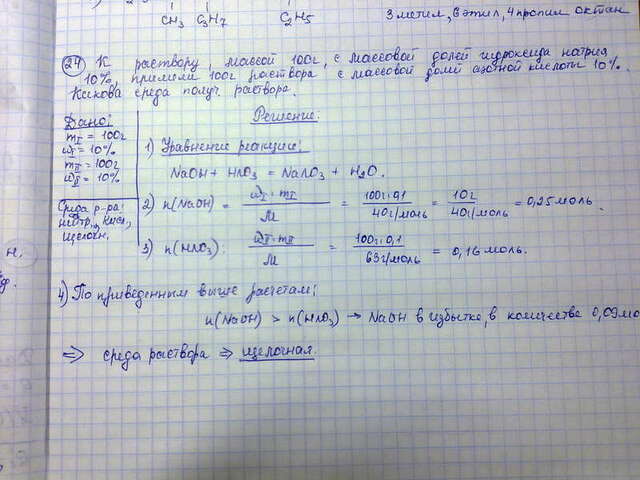 CH₃ C₃H₇ C₂H₅
3 метил, 6 этил, 4 пропил октан
24 К раствору, массой 100г, с массовой долей гидроксида натрия
10%, прилили 100г раствора с массовой долей азотной кислоты 10%.
Какова среда получ. раствора.
Дано:
mI = 100г
ωI = 10%
mII = 100г
ωII = 10%
Среда р-ра:
нейтр., кисл,
щелочн.
Решение:
1) Уравнение реакции:
NaOH + HNO₃ = NaNO₃ + H₂O.
2) n(NaOH) = ωI · mI / M = 100г·0,1 / 40г/моль = 10г / 40г/моль = 0,25 моль.
3) n(HNO₃): ωII · mII / M = 100г·0,1 / 63г/моль = 0,16 моль.
4) По приведенным выше расчетам:
n(NaOH) > n(HNO₃) → NaOH в избытке, в количестве 0,09мо
⇒ среда раствора ⇒ щелочная.
н.